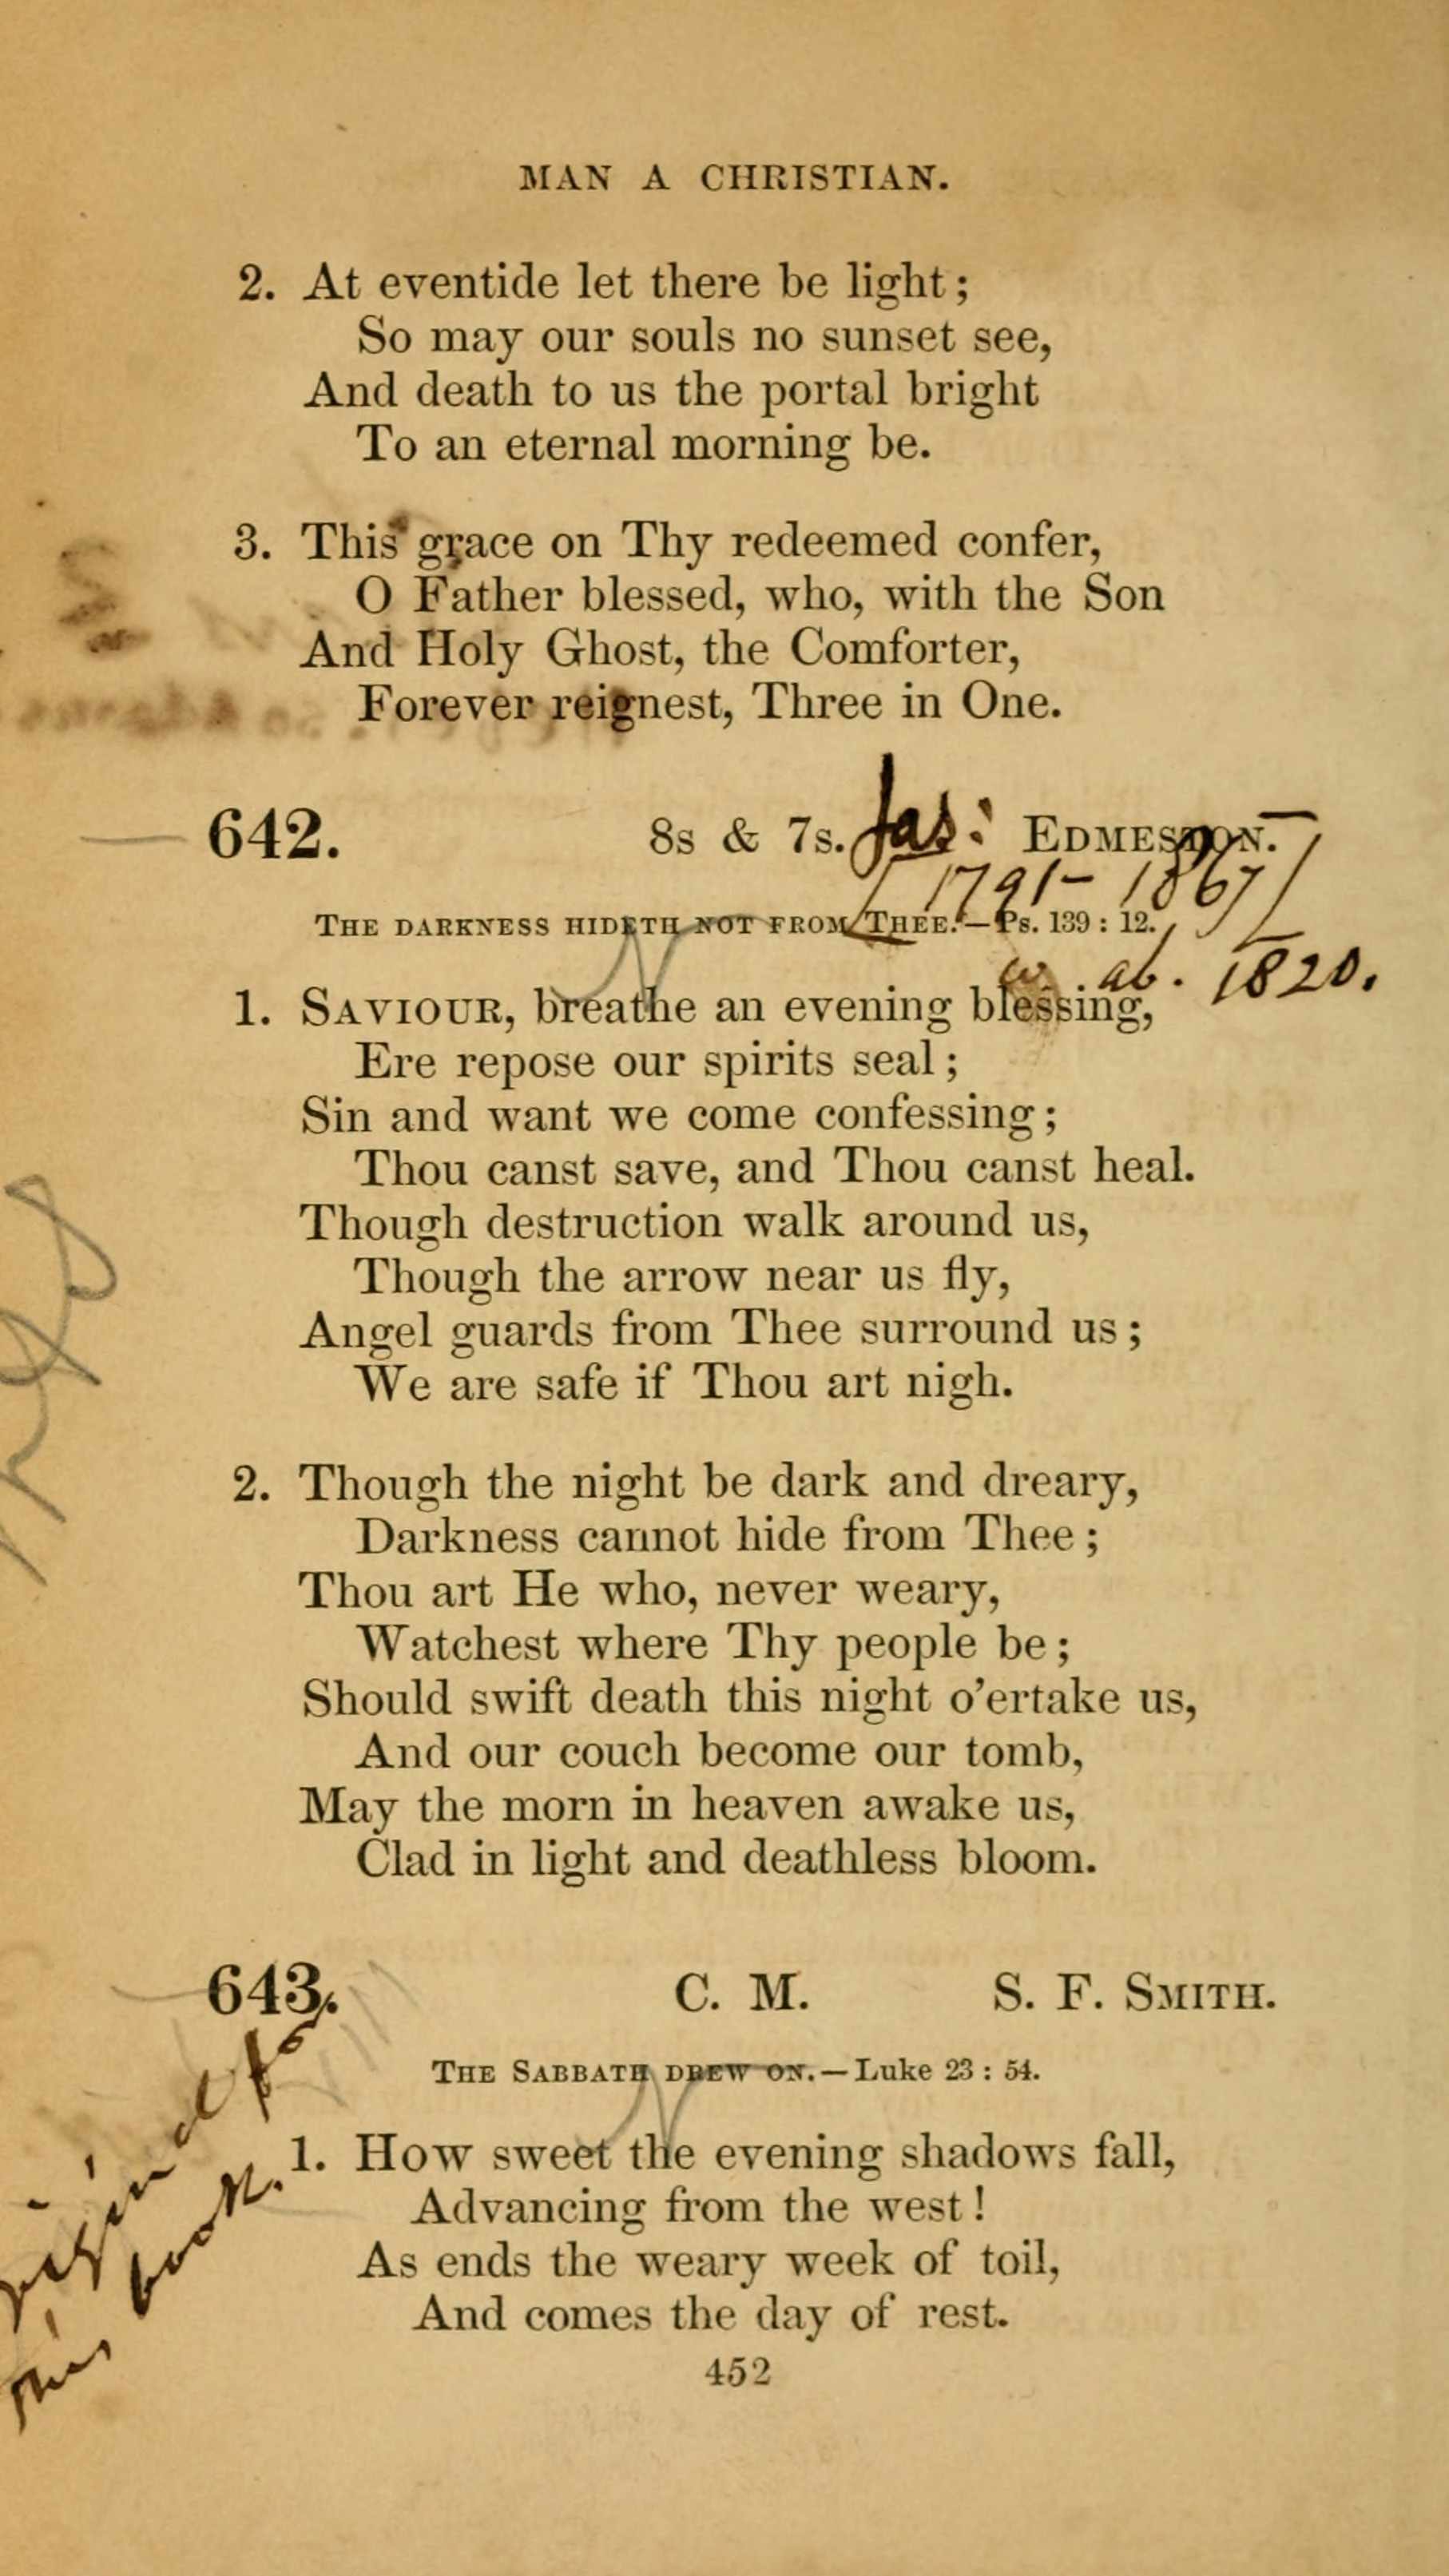 MAN A CHRISTIAN.
2. At eventide let there be light;
So may our souls no sunset see,
And death to us the portal bright
To an eternal morning be.
3. This grace on Thy redeemed confer,
O Father blessed, who, with the Son
And Holy Ghost, the Comforter,
Forever reignest, Three in One.
642. 8s & 7s. Jas: EDMESTON.
[1791-1867]
THE DARKNESS HIDETH NOT FROM THEE.—Ps. 139 : 12.
w. ab. 1820.
1. SAVIOUR, breathe an evening blessing,
Ere repose our spirits seal;
Sin and want we come confessing;
Thou canst save, and Thou canst heal.
Though destruction walk around us,
Though the arrow near us fly,
Angel guards from Thee surround us;
We are safe if Thou art nigh.
2. Though the night be dark and dreary,
Darkness cannot hide from Thee;
Thou art He who, never weary,
Watchest where Thy people be;
Should swift death this night o'ertake us,
And our couch become our tomb,
May the morn in heaven awake us,
Clad in light and deathless bloom.
643. C. M. S. F. SMITH.
THE SABBATH DREW ON.—Luke 23 : 54.
this book.
1. How sweet the evening shadows fall,
Advancing from the west!
As ends the weary week of toil,
And comes the day of rest.
452